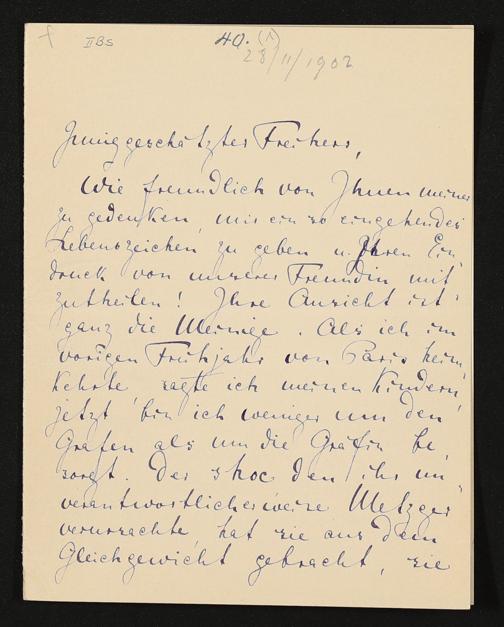 II Bs
40. (1)
28/11/1902
Inniggeschätzter Freiherr,
Wie freundlich von Ihnen meiner
zu gedenken, mir ein so eingehendes
Lebenszeichen zu geben u. Ihren Ein„
druck von unserer Freundin mit„
zutheilen! Ihre Ansicht ist
ganz die Meinige. Als ich im
vorigen Frühjahr von Paris heim„
kehrte sagte ich meinen Kindern,
jetzt bin ich weniger um den
Grafen als um die Gräfin be„
sorgt. Der shoc den ihr un„
verantwortlicherweise Metzger
verursachte, hat sie aus dem
Gleichgewicht gebracht, sie